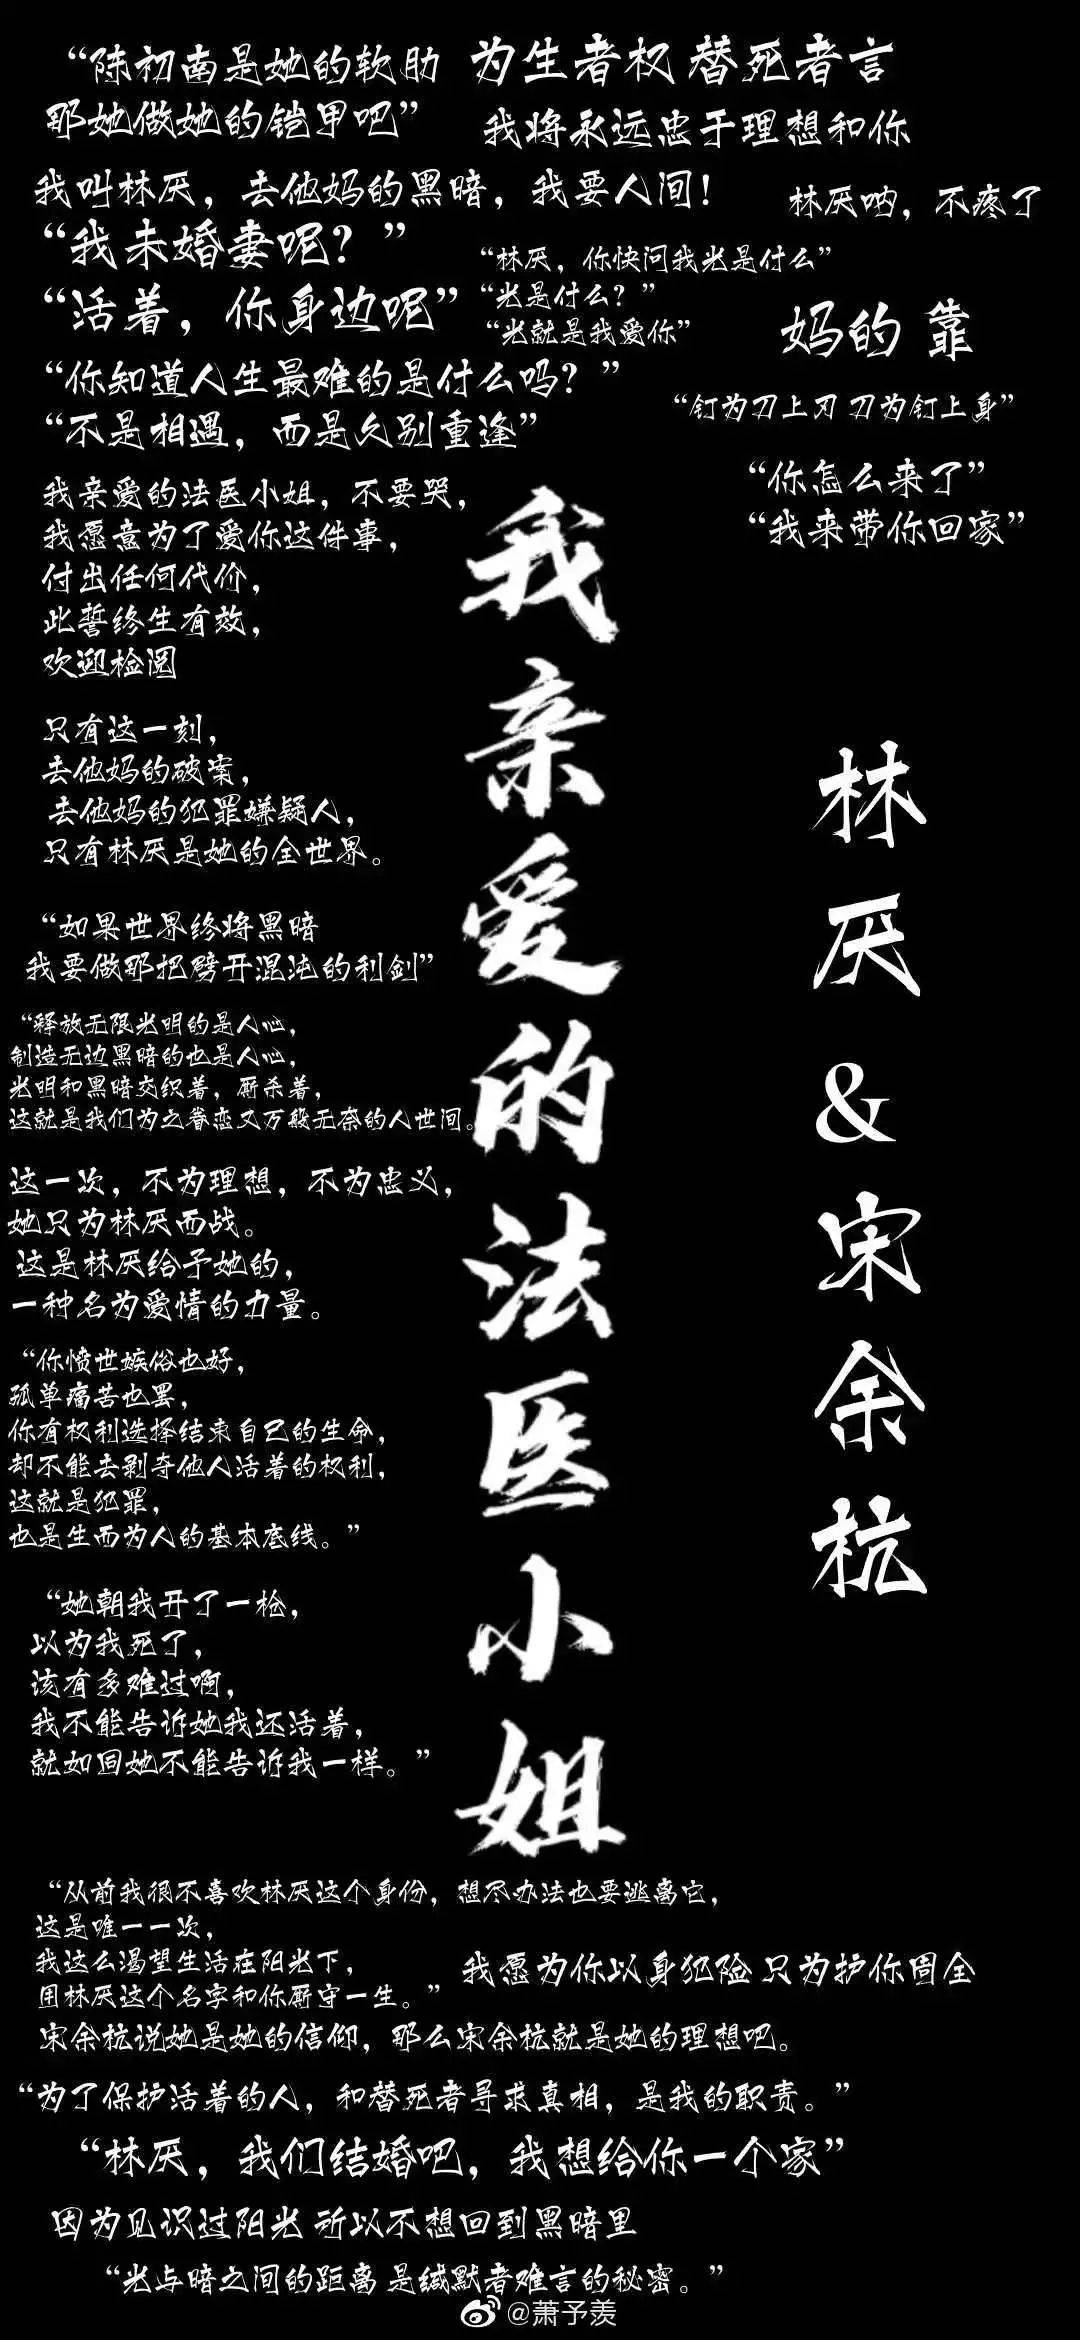 “陈初南是她的软肋
那她做她的铠甲吧”
为生者权 替死者言
我将永远忠于理想和你
我叫林厌，去他妈的黑暗，我要人间！
林厌呐，不疼了
“我未婚妻呢？”
“活着，你身边呢”
“林厌，你快问我光是什么”
“光是什么？”
“光就是我爱你”
妈的 靠
“你知道人生最难的是什么吗？”
“不是相遇，而是久别重逢”
“钉为刀上刃 刀为钉上身”
“你怎么来了”
“我来带你回家”
我亲爱的法医小姐，不要哭，
我愿意为了爱你这件事，
付出任何代价，
此誓终生有效，
欢迎检阅
只有这一刻，
去他妈的破案，
去他妈的犯罪嫌疑人，
只有林厌是她的全世界。
“如果世界终将黑暗
我要做那把劈开混沌的利剑”
“释放无限光明的是人心，
制造无边黑暗的也是人心，
光明和黑暗交织着，厮杀着，
这就是我们为之眷恋又万般无奈的人世间。
这一次，不为理想，不为忠义，
她只为林厌而战。
这是林厌给予她的，
一种名为爱情的力量。
“你愤世嫉俗也好，
孤单痛苦也罢，
你有权利选择结束自己的生命，
却不能去剥夺他人活着的权利，
这就是犯罪，
也是生而为人的基本底线。”
“她朝我开了一枪，
以为我死了，
该有多难过啊，
我不能告诉她我还活着，
就如同她不能告诉我一样。”
我亲爱的法医小姐
林厌&宋余杭
“从前我很不喜欢林厌这个身份，想尽办法也要逃离它，
这是唯一一次，
我这么渴望生活在阳光下，
用林厌这个名字和你厮守一生。”
我愿为你以身犯险 只为护你周全
宋余杭说她是她的信仰，那么宋余杭就是她的理想吧。
“为了保护活着的人，和替死者寻求真相，是我的职责。”
“林厌，我们结婚吧，我想给你一个家”
因为见识过阳光 所以不想回到黑暗里
“光与暗之间的距离 是缄默者难言的秘密。”
@萧予羡